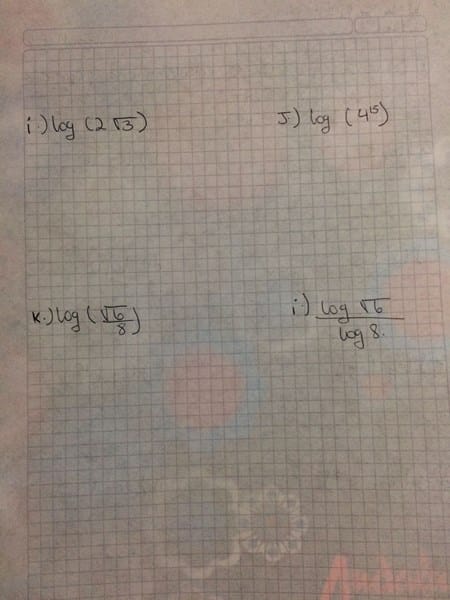 i.) log (2√3)
J) log (4¹⁵)
K.) log (√6/8)
i.) log √6
log 8.